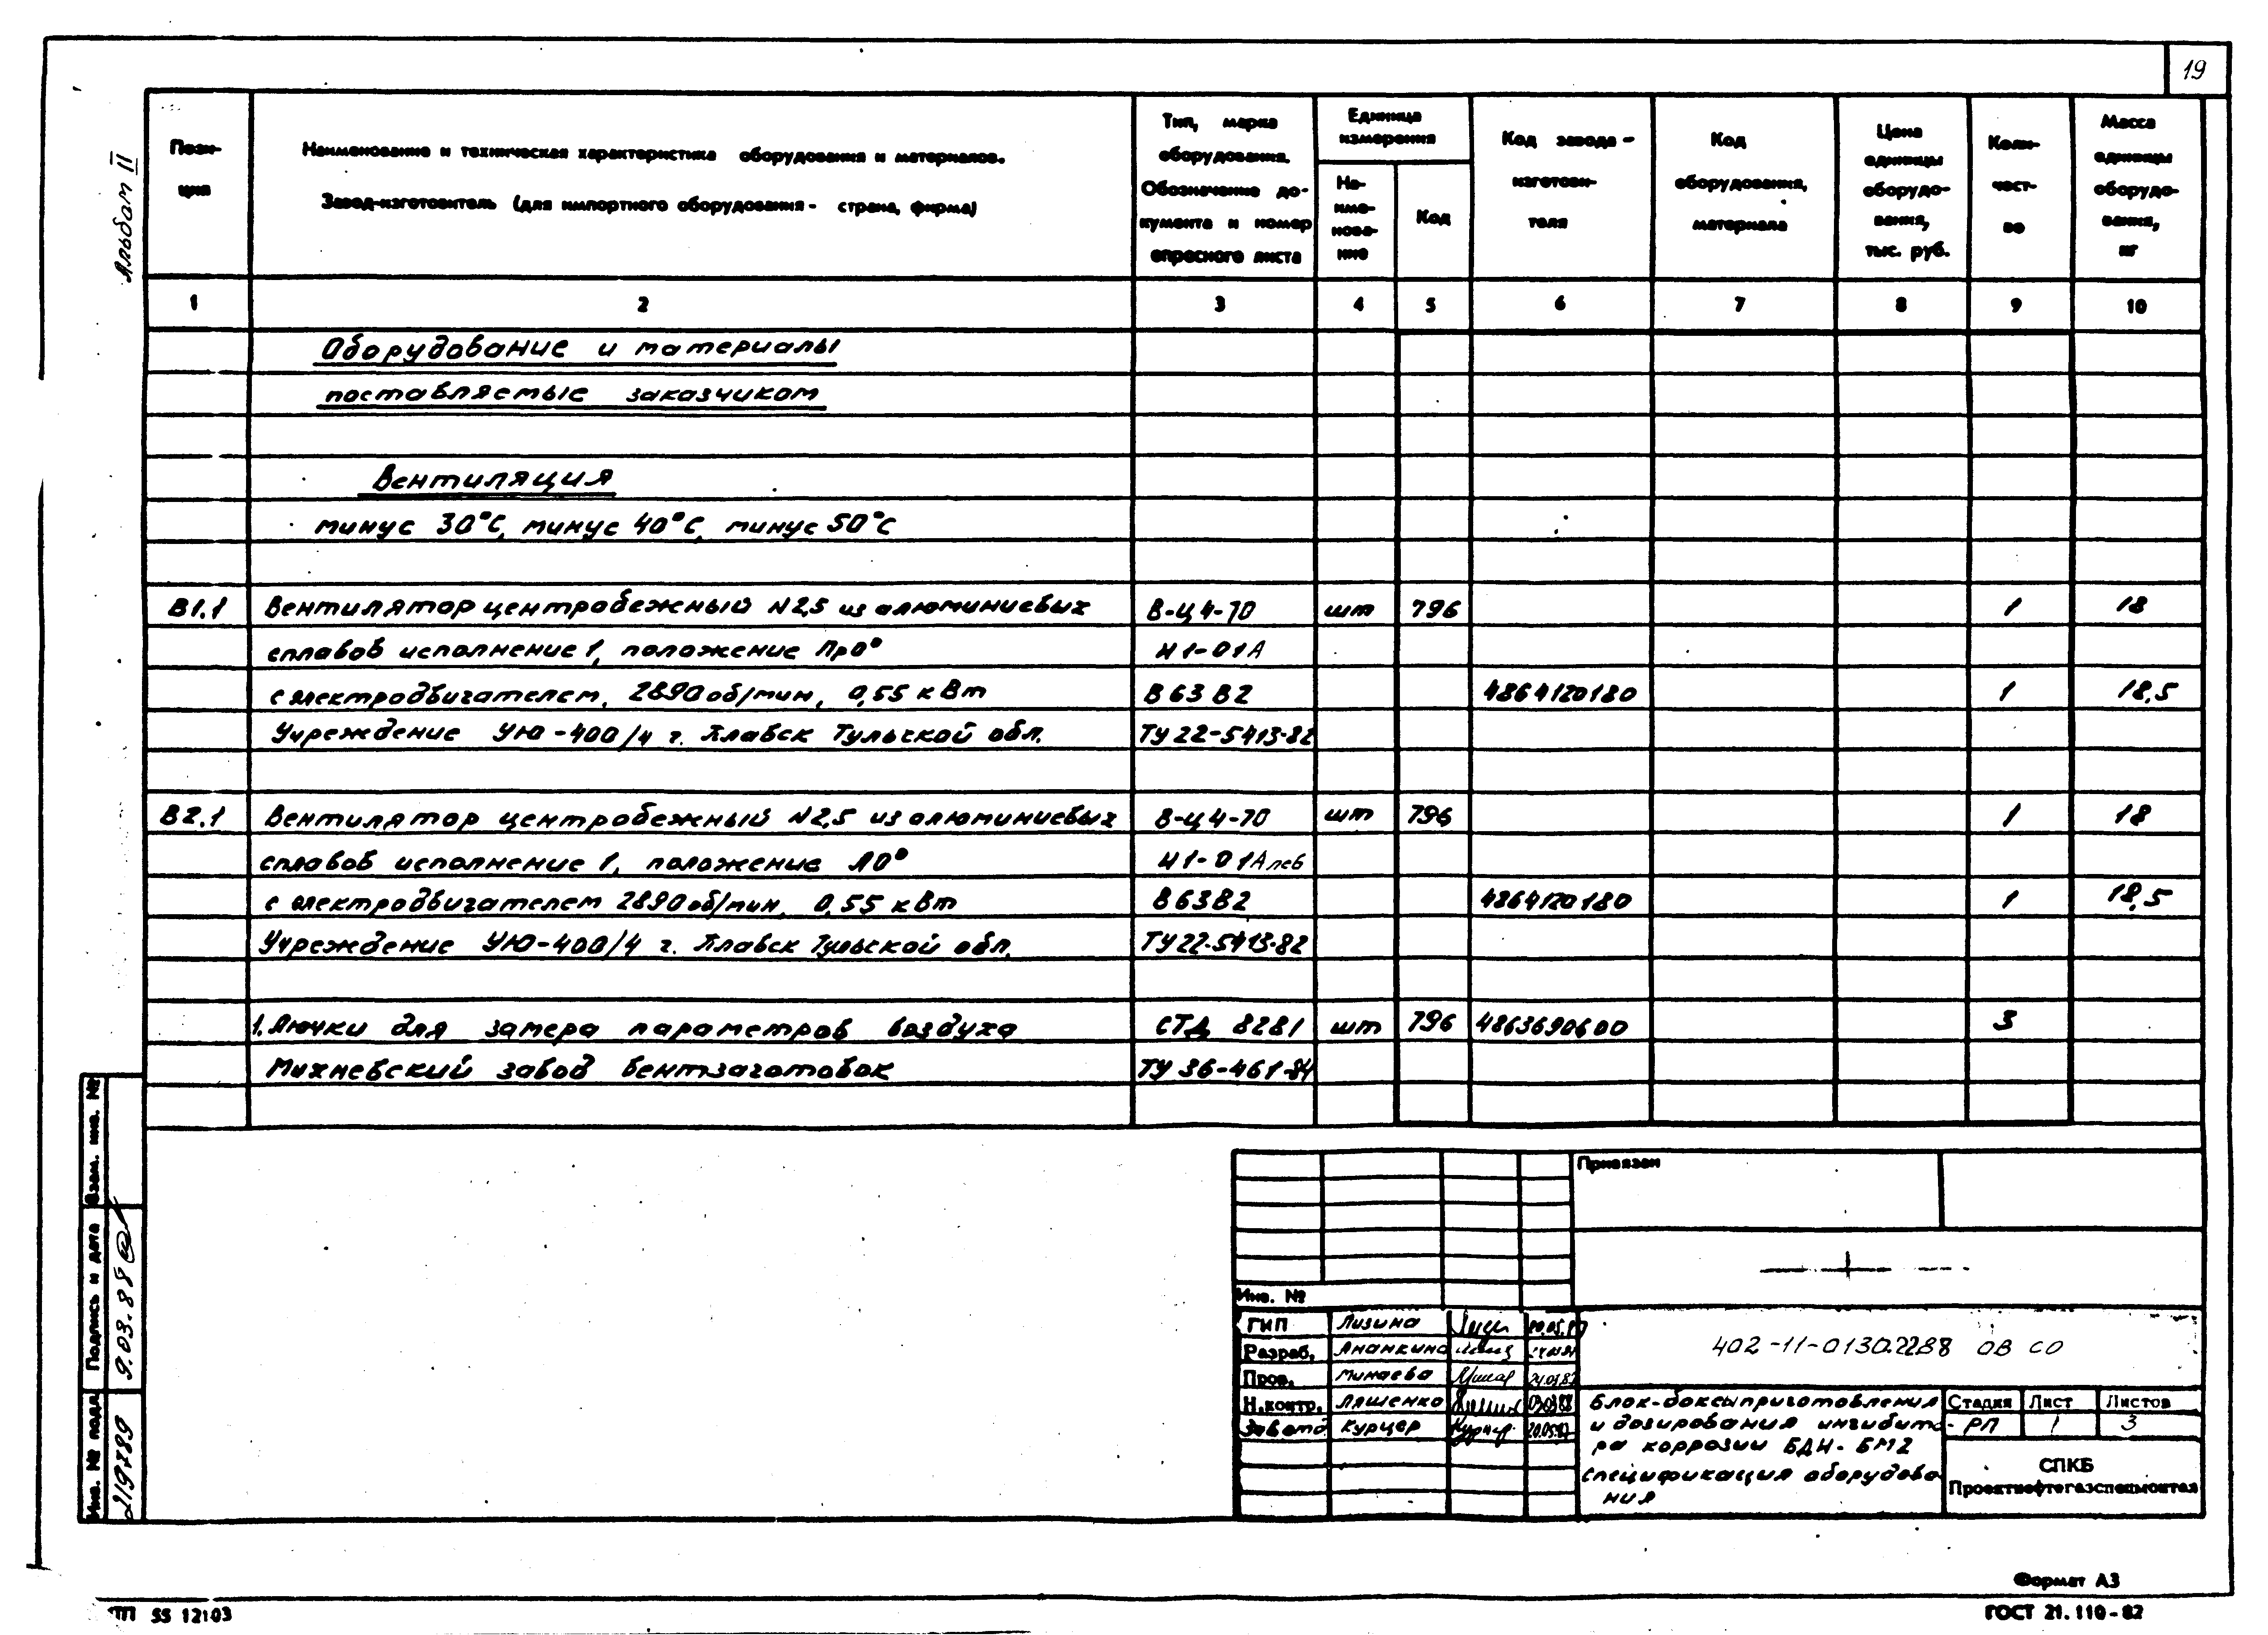 19
Альбом II
Пози-
ция
Наименование и техническая характеристика оборудования и материалов.
Завод-изготовитель (для импортного оборудования - страна, фирма)
Тип, марка
оборудования.
Обозначение до-
кумента и номер
опросного листа
Единица
измерения
На-
име-
нова-
ние
Код
Код завода -
изготови-
теля
Код
оборудования,
материала
Цена
единицы
оборудо-
вания,
тыс. руб.
Коли-
чест-
во
Масса
единицы
оборудо-
вания,
кг
1 2 3 4 5 6 7 8 9 10
Оборудование и материалы
поставляемые заказчиком
Вентиляция
минус 30°С, минус 40°С, минус 50°С
В1.1 Вентилятор центробежный N2,5 из алюминиевых В-Ц4-70 шт 796 1 18
сплавов исполнение 1, положение Пр0° И1-01А
с электродвигателем, 2890 об/мин, 0,55 кВт В63В2 4864120180 1 18,5
Учреждение УЮ-400/4 г. Плавск Тульской обл. ТУ 22-5413-82
В2.1 Вентилятор центробежный N2,5 из алюминиевых В-Ц4-70 шт 796 1 18
сплавов исполнение 1, положение Л0° И1-01А лев
с электродвигателем 2890 об/мин, 0,55 кВт В63В2 4864120180 1 18,5
Учреждение УЮ-400/4 г. Плавск Тульской обл. ТУ22-5413-82
1. Лючки для замера параметров воздуха СТД 8281 шт 796 4863690600 3
Михневский завод вентзаготовок ТУ 36-461-84
Взам. инв. №
Подпись и дата
9.03.88
Инв. № подл
219789
Привязан
Инв. №
ГИП Лизина
Разраб. Ананкина
Пров. Минаева
Н.контр. Ляшенко 030388
Зав отд Курцер
402-11-0130.2288 ОВ СО
Блок-боксы приготовления
и дозирования ингибито-
ра коррозии БДИ-БМ2
спецификация оборудова
ния
Стадия Лист Листов
РП 1 3
СПКБ
Проектнефтегазспецмонтаж
Формат А3
ТП 55 12103
ГОСТ 21.110-82